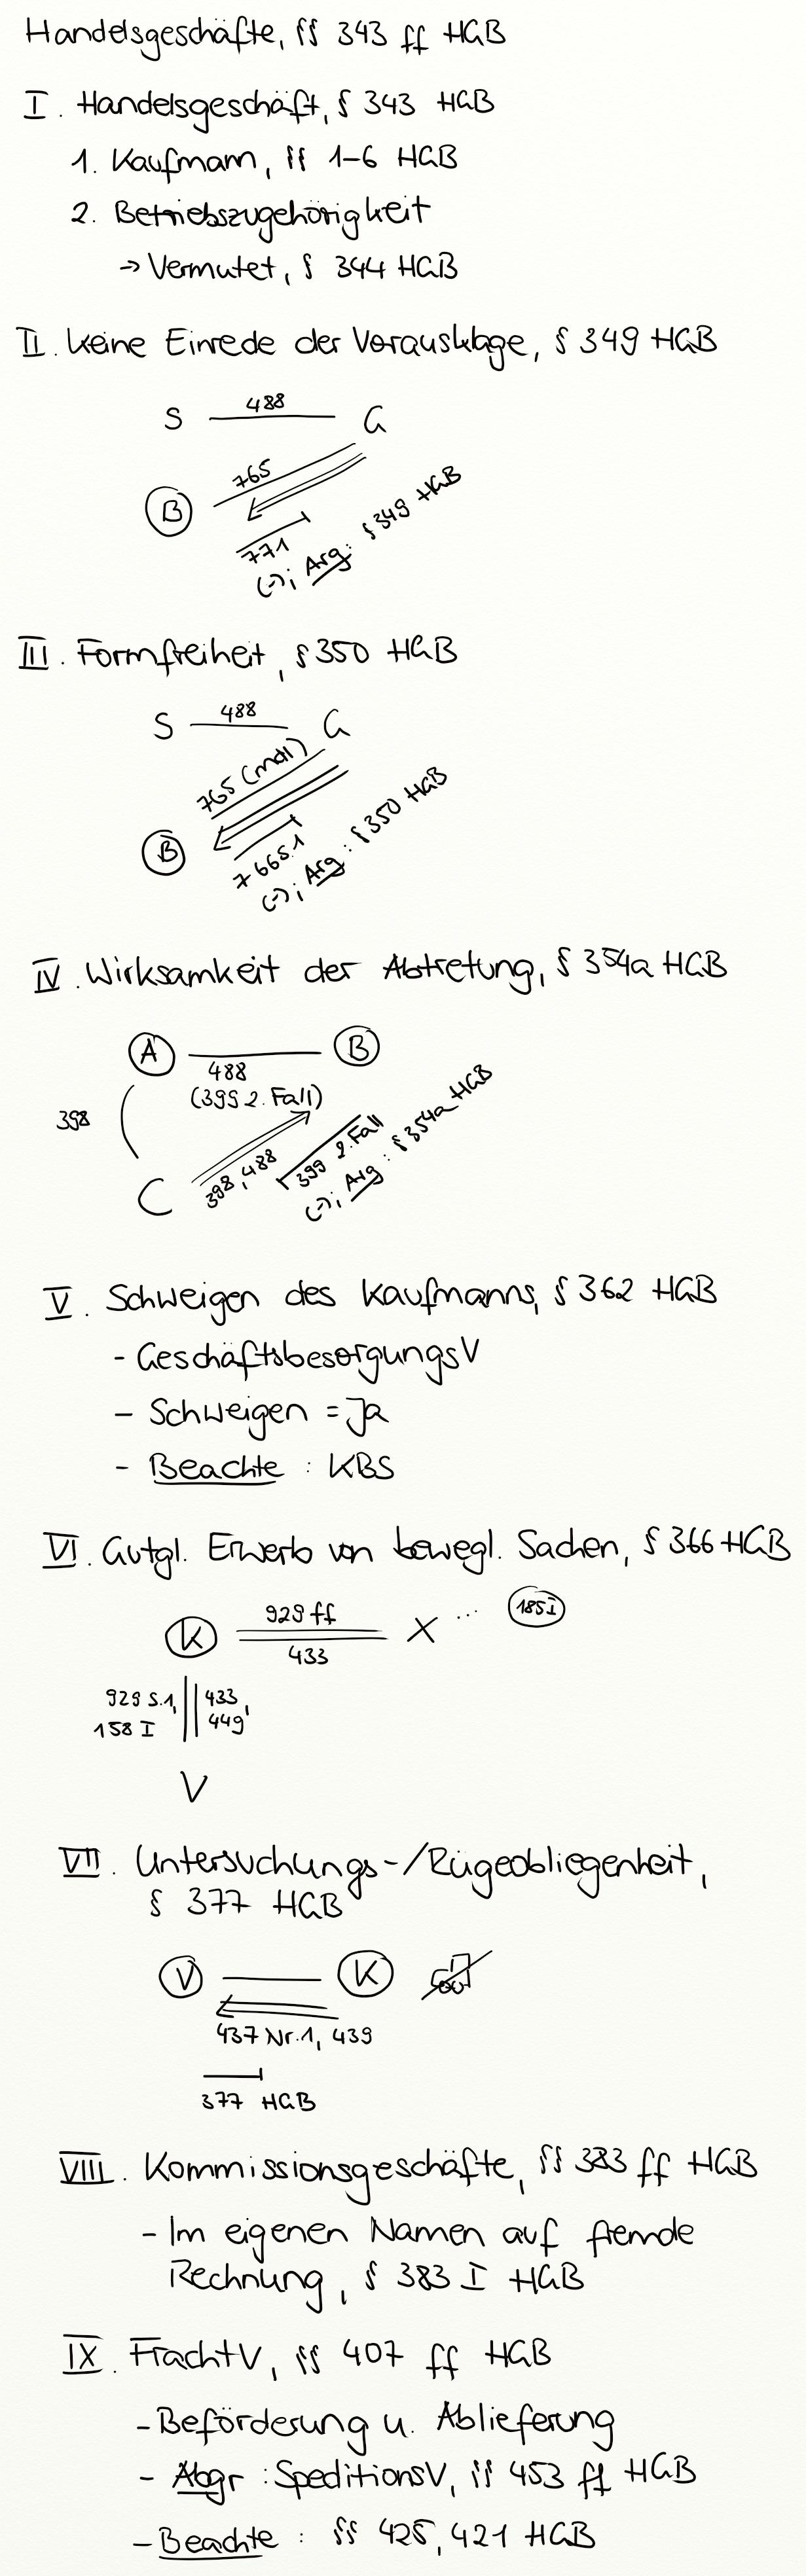 Handelsgeschäfte, §§ 343 ff HGB
I. Handelsgeschäft, § 343 HGB
1. Kaufmann, §§ 1-6 HGB
2. Betriebszugehörigkeit
→ Vermutet, § 344 HGB
II. Keine Einrede der Vorausklage, § 349 HGB
S 488 G
765
B
771
(-); Arg: § 349 HGB
III. Formfreiheit, § 350 HGB
S 488 G
765 (mdl)
B
766 S.1
(-); Arg: § 350 HGB
IV. Wirksamkeit der Abtretung, § 354a HGB
A B
488
(399 2. Fall)
398
C
398, 488
399 2. Fall
(-); Arg: § 354a HGB
V. Schweigen des Kaufmanns, § 362 HGB
- GeschäftsbesorgungsV
- Schweigen = Ja
- Beachte: KBS
VI. Gutgl. Erwerb von bewegl. Sachen, § 366 HGB
K 929 ff X ... 185 I
433
929 S.1, 433,
158 I 449
V
VII. Untersuchungs-/Rügeobliegenheit,
§ 377 HGB
V K
437 Nr.1, 439
377 HGB
VIII. Kommissionsgeschäfte, §§ 383 ff HGB
- Im eigenen Namen auf fremde
Rechnung, § 383 I HGB
IX. FrachtV, §§ 407 ff HGB
- Beförderung u. Ablieferung
- Abgr: SpeditionsV, §§ 453 ff HGB
- Beachte: §§ 425, 421 HGB